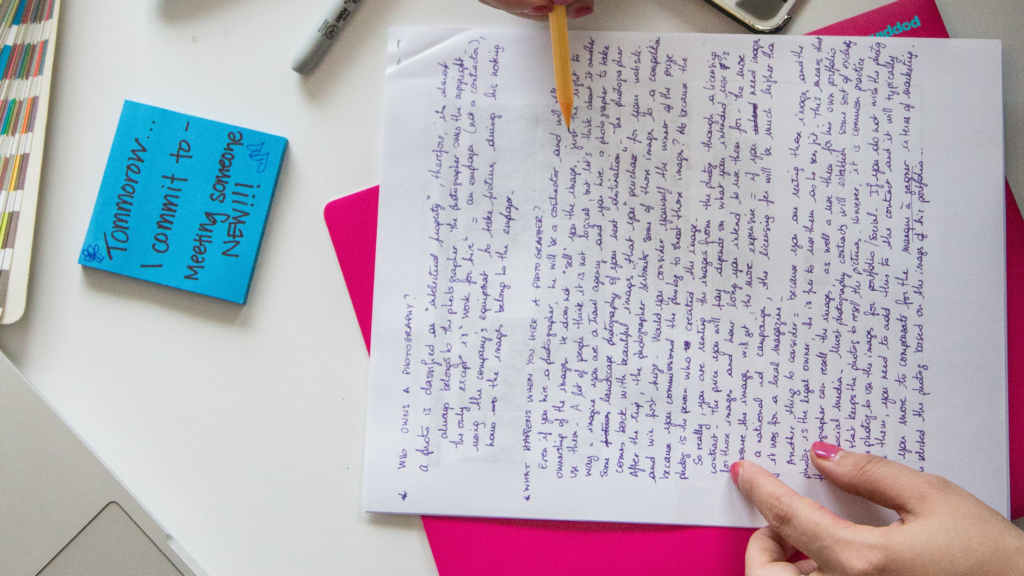 Tommorow...
I commit to -
Meeting someone
NEW!!!!
WHO OWNS A PHOTOGRAPHY?
a photo is classified as "intellectual property", therefore, it's almost
always belongs to the photographer. the photographer owns the copyright
the only except° is "work for hire" = an employee (not a contractor),
using the company's equipment to take pictures, during his working
hours the images belong to the employer.
WHAT HAPPENS WHEN YOU HIRE A PHOTOGRAPHER?
Even if you hire a photographer, he will be a contractor and will
ownership of the image. He does not "sell" you the image, just the right to
use them. A lot of people think it is not logical but let's think about it another
way = imagine you are a travel agency and you hire a photographer to take
some landscape photography of your next destination. The photographer
comes back with beautiful image that you purchase for your website.
After the trip, the photographer submits some of those image to a competition
and win first prize. Would you consider yourself the winner of the prize
because you commissioned the photog to shoot those image? No because the
photog is the person who created the image.
So really, you are renting the images from the photog through a licensing
contract. The price you will pay depends on what you intended use is
for those image and how long you intend to use them for. The more
exposure the image will get, the more expensive = if you need image
a national ad campaign, the licensing for will be much higher than
it is for a local magazine.
Another thing to consider = because you are renting those image and the
photog is the legal owner, he is free to use them as he see fit. This means that
photographer can resell the image as well as use them for his own portfolio
social media. Most photography contracts will establish some sort of exclusivity
that keeps the photog to resell the picture, however it is common practice
photog to use the image for portfolio/social. If you do not wish the photog
them, you need to add this to the contract and it will typically
you more to compensate for the manque à gagner in term of marketing.
the photog based on this image of his portfolio...